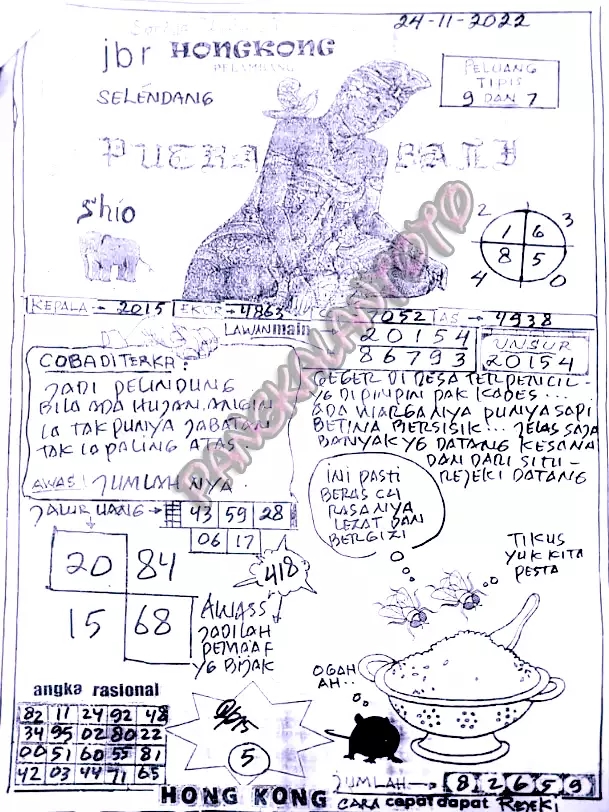 24-11-2022
jbr HONGKONG
PELAMBANG
SELENDANG
PELUANG
TIPIS
9 DAN 7
PUTRA BALI
Shio
2 3
1 6
8 5
4 0
KEPALA → 2015 EKOR → 4863
2052 AS → 4938
LAWAN main
20154
86793
UNSUR
20154
COBA DITERKA:
JADI PELINDUNG
BILA ADA HUJAN, ANGIN
IA TAK PUNYA JABATAN
TAK IA PALING ATAS
AWAS! JUMLAH NYA
GEGER DI DESA TERPENCIL
YG DIPIMPIN PAK KADES...
ADA WARGANYA PUNYA SAPI
BETINA BERSISIK... JELAS SAJA
BANYAK YG DATANG KESANA
DAN DARI SITU -
REJEKI DATANG
PANGKALANTOTO
JALUR UANG → 43 59 28
06 17
20 84
15 68
418
AWASS
JADILAH
PEMAAF
YG BIJAK
INI PASTI
RASANYA
LEZAT DAN
BERGIZI
TIKUS
YUK KITA
PESTA
OGAH
AH..
angka rasional
82 11 24 92 48
34 95 02 80 22
00 51 60 55 81
42 03 44 71 65
5
JUMLAH → 8 2 6 5 9
HONG KONG CARA cepat dapat Rejeki